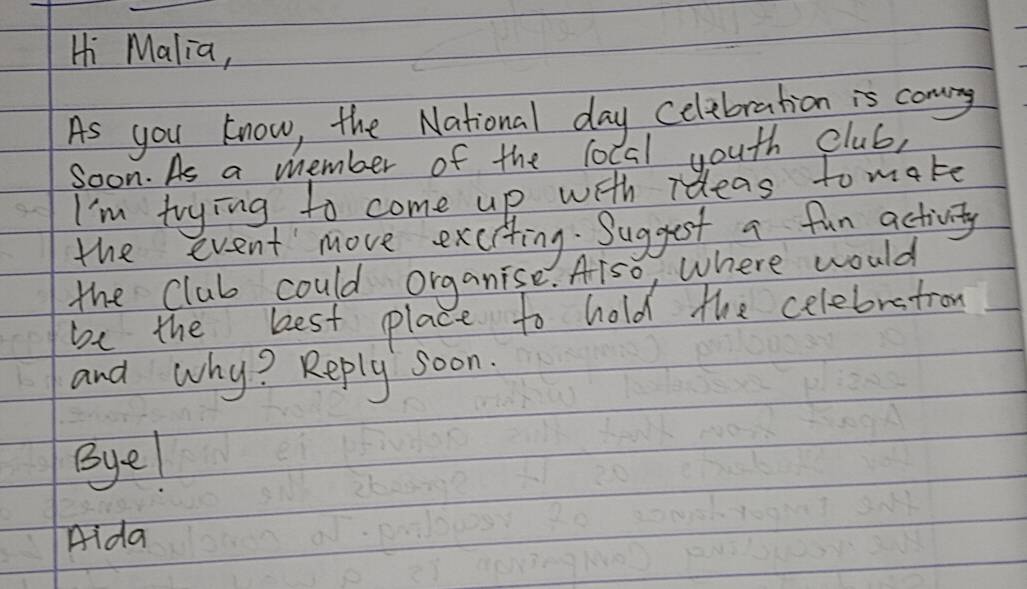 Hi Malia,
As you know, the National day celebration is coming
soon. As a member of the local youth club,
I'm trying to come up with ideas to make
the event more exciting. Suggest a fun activity
the club could organise. Also, where would
be the best place to hold the celebration
and why? Reply soon.
Bye!
Aida